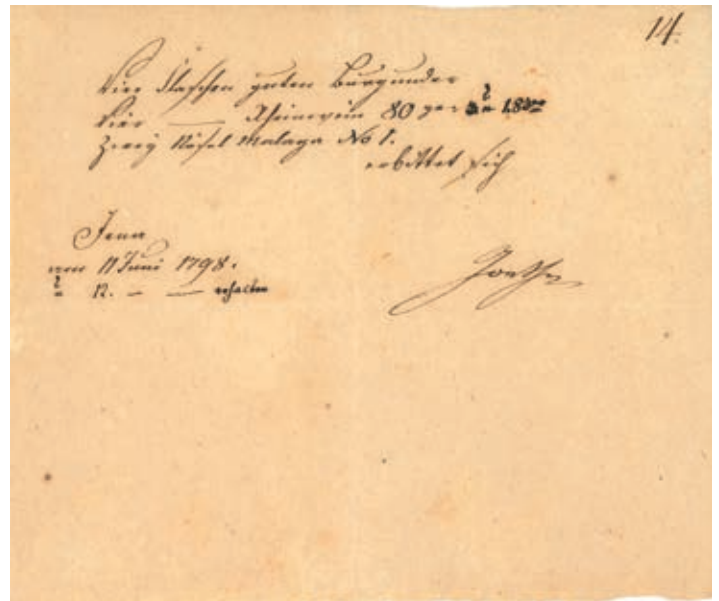 14.
Vier Flaschen guten Burgunder
Vier —— Rheinwein 80 per
Zwey Nösel Malaga No 1.
erbittet sich
Jena
am 11 Juni 1798.
Goethe
12. — — erhalten